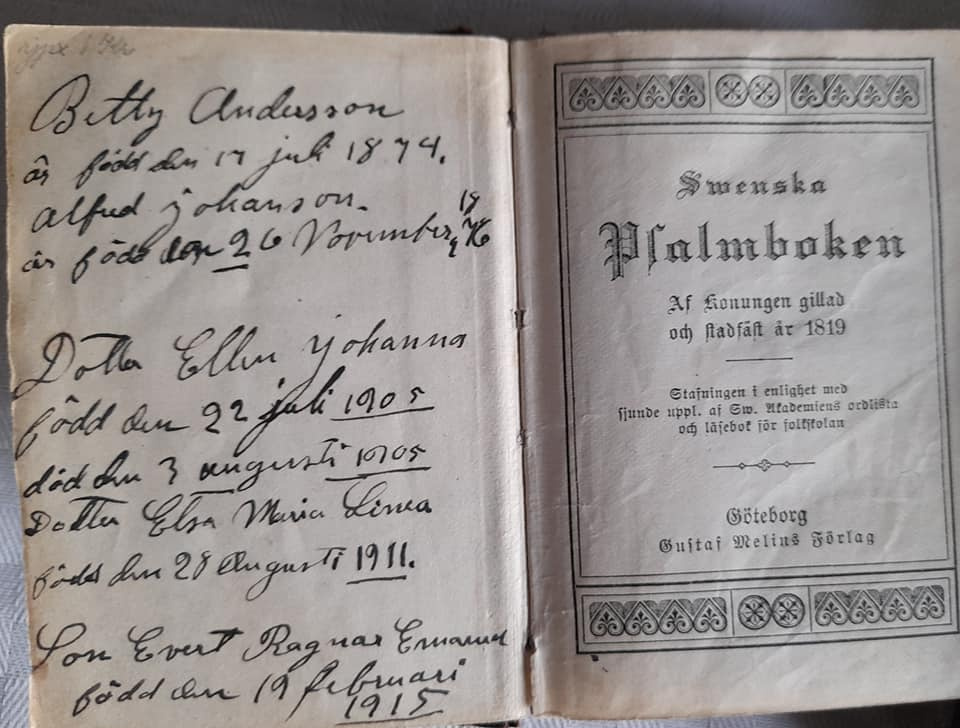 Betty Andersson
är född den 17 juli 1874.
Alfred Johanson.
är född den 26 November 1876
Dotter Ellen Johanna
född den 22 juli 1905
död den 3 augusti 1905
Dotter Elsa Maria Linea
född den 28 Augusti 1911.
Son Evert Ragnar Emanuel
född den 19 februari
1915
Swenska
Psalmboken
Af Konungen gillad
och stadfäst år 1819
Stafningen i enlighet med
sjunde uppl. af Sw. Akademiens ordlista
och läsebok för folkskolan
Göteborg
Gustaf Melins Förlag